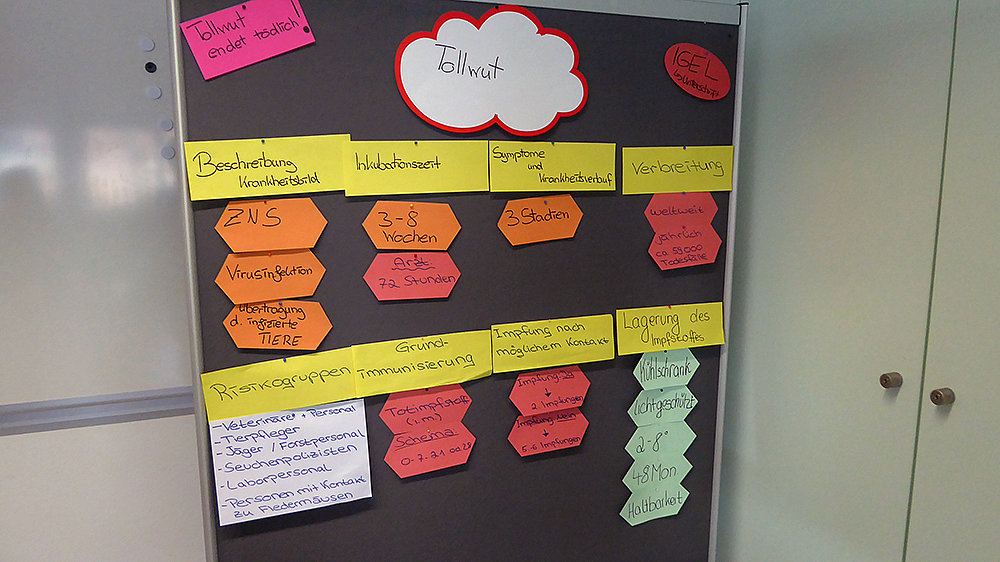 Tollwut
endet tödlich!
Tollwut
IGEL
Beschreibung
Krankheitsbild
ZNS
Virusinfektion
Übertragung
d. infizierte
TIERE
Inkubationszeit
3-8
Wochen
Arzt
72 Stunden
Symptome
und
Krankheitsverlauf
3 Stadien
Verbreitung
weltweit
jährlich
ca 59000
Todesfälle
Risikogruppen
- Veterinäre + Personal
- Tierpfleger
- Jäger / Forstpersonal
- Seuchenpolizisten
- Laborpersonal
- Personen mit Kontakt
zu Fledermäusen
Grund-
immunisierung
Totimpfstoff
(i.m.)
Schema
0-7-21
Impfung nach
möglichem Kontakt
Impfung
↓
2 Impfungen
Impfung Nein
↓
5-6 Impfungen
Lagerung des
Impfstoffes
Kühlschrank
lichtgeschützt
2-8°
48 Mon
Haltbarkeit